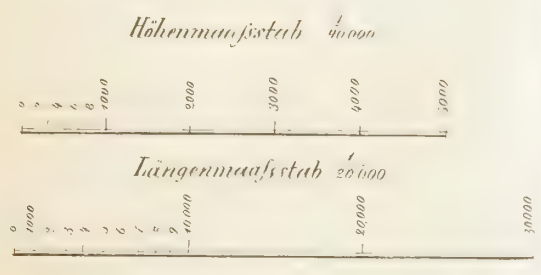 Höhenmaaſsstab 1/40000
0 2 4 6 8 1000 2000 3000 4000 5000
Längenmaaſsstab 1/20000
0 1000 2 3 4 5 6 7 8 9 10000 20,000 30000